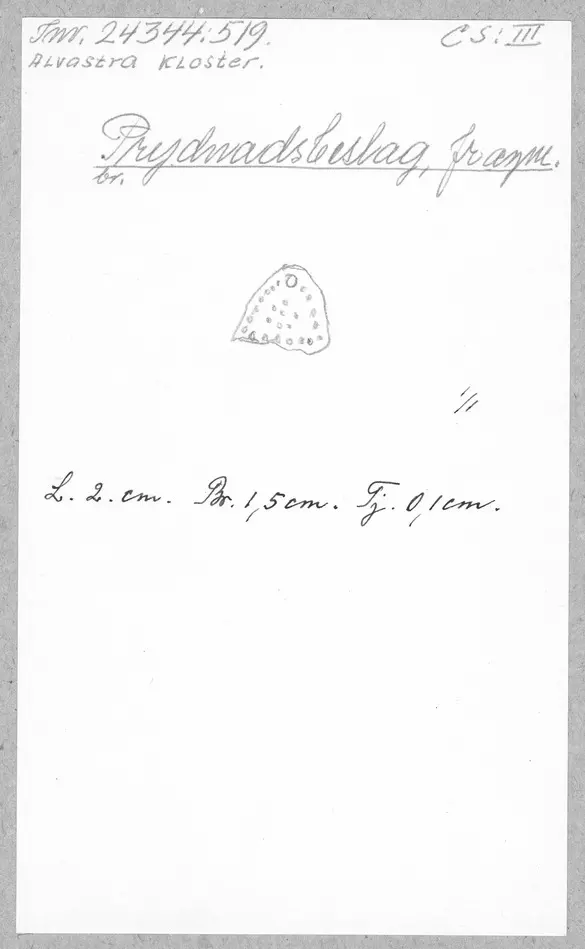 Inv. 24344:519. CS: III
Alvastra Kloster.
Prydnadsbeslag, fragm.
br.
1/1
L. 2. cm. Br. 1,5 cm. Tj. 0,1 cm.